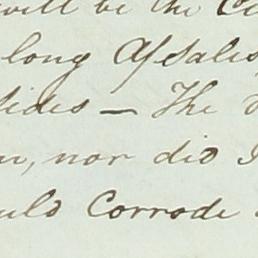 will be the
long Afsalis
sides — The
nor did I
Corrode